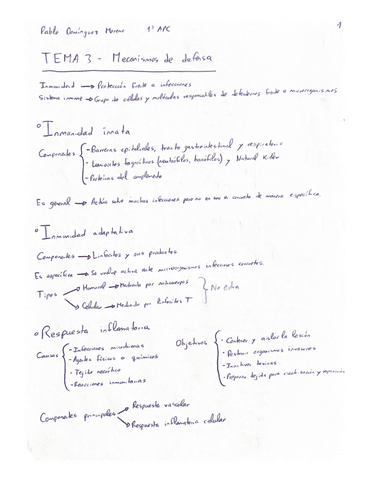 Pablo Domínguez Moreno 1º APC
1
TEMA 3 - Mecanismos de defensa
Inmunidad → Protección frente a infecciones
Sistema inmune → Grupo de células y moléculas responsables de defendernos frente a microorganismos
Inmunidad innata
Componentes
- Barreras epiteliales, tracto gastrointestinal y respiratorio
- Leucocitos fagocíticos (neutrófilos, macrófilos) y Natural Killer
- Proteínas del complemento
Es general → Actúa sobre muchas infecciones pero no en contra concreta de manera específica
Inmunidad adaptativa
Componentes → Linfocitos y sus productos
Es específica → Se vuelve activa ante microorganismos infecciosos concretos.
Tipos
Humoral → Mediada por anticuerpos
Celular → Mediada por linfocitos T
No entra
Respuesta inflamatoria
Causas
- Infecciones microbianas
- Agentes físicos o químicos
- Tejido necrótico
- Reacciones inmunitarias
Objetivos
- Contener y aislar la lesión
- Destruir organismos invasores
- Inactivar toxinas
- Preparar tejido para cicatrización y reparación
Componentes principales
Respuesta vascular
Respuesta inflamatoria celular